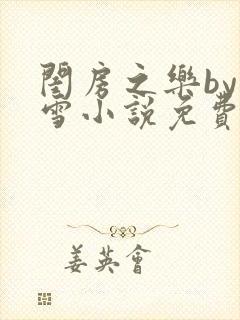 閨房之樂by
雪小說免費
姜英會